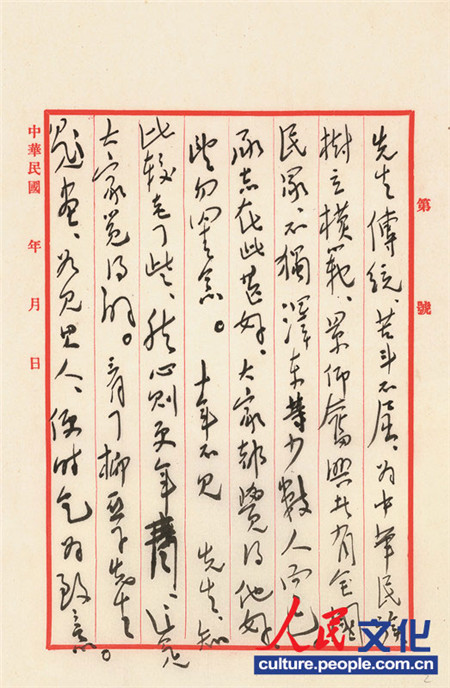 第 號
先生傳統、苦斗不屈、为中華民族
樹立模範、景仰奮興者有全國
民眾、不獨澤東等少數人而已
承志在此甚好、大家都覺得他好、
望勿罣念。 十年不見 先生、知
比較老了些、然心則更年青、這是
大家覺得的。看了柳亞子先生
題畫、如見其人、便時乞为致意。
中華民國 年 月 日
人民文化
culture.people.com.cn
2